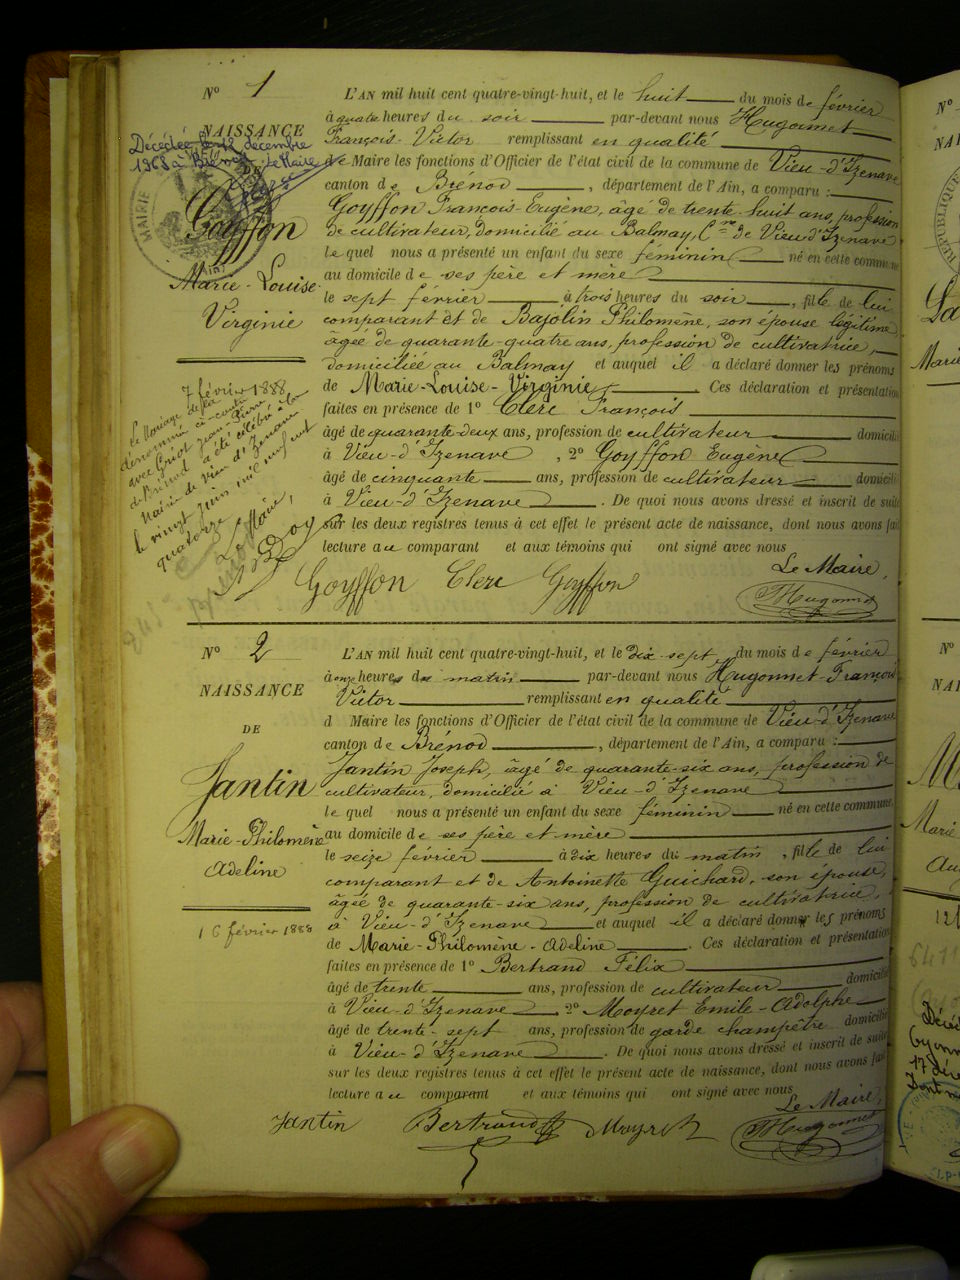 N° 1
NAISSANCE
DE
Goyffon
Marie-Louise-
Virginie
Décédée le 12 décembre
1968 à Brénod Le Maire
MAIRIE
7 février 1888
Le mariage de la
dénommée ci-contre
avec Griot Jean-Pierre
de Brénod a été célébré à la
Mairie de Vieu d'Izenave
le vingt juin mil neuf cent
quatorze
Le Maire,
L'AN mil huit cent quatre-vingt-huit, et le huit du mois de février
à quatre heures du soir par-devant nous Hugonnet
François-Victor remplissant en qualité
de Maire les fonctions d'Officier de l'état civil de la commune de Vieu-d'Izenave
canton de Brénod, département de l'Ain, a comparu :
Goyffon François-Eugène, âgé de trente-huit ans, profession
de cultivateur, domicilié au Balmay, Cne de Vieu d'Izenave
lequel nous a présenté un enfant du sexe féminin né en cette commune
au domicile de ses père et mère
le sept février à trois heures du soir, fille de lui
comparant et de Bajolin Philomène, son épouse légitime
âgée de quarante-quatre ans, profession de cultivatrice,
domiciliée au Balmay et auquel il a déclaré donner les prénoms
de Marie-Louise-Virginie Ces déclaration et présentation
faites en présence de 1° Clerc François
âgé de quarante-deux ans, profession de cultivateur domicilié
à Vieu-d'Izenave, 2° Goyffon Eugène
âgé de cinquante ans, profession de cultivateur domicilié
à Vieu-d'Izenave. De quoi nous avons dressé et inscrit de suite
sur les deux registres tenus à cet effet le présent acte de naissance, dont nous avons fait
lecture au comparant et aux témoins qui ont signé avec nous
Le Maire,
Goyffon Clerc Goyffon Hugonnet
N° 2
NAISSANCE
DE
Jantin
Marie-Philomène
Adeline
16 février 1888
L'AN mil huit cent quatre-vingt-huit, et le dix-sept, du mois de février
à onze heures du matin par-devant nous Hugonnet-François
Victor remplissant en qualité
d Maire les fonctions d'Officier de l'état civil de la commune de Vieu-d'Izenave
canton de Brénod, département de l'Ain, a comparu :
Jantin Joseph, âgé de quarante-six ans, profession de
cultivateur, domicilié à Vieu-d'Izenave
lequel nous a présenté un enfant du sexe féminin né en cette commune
au domicile de ses père et mère
le seize février à dix heures du matin, fille de lui
comparant et de Antoinette Guichard, son épouse,
âgée de quarante-six ans, profession de cultivatrice,
à Vieu-d'Izenave et auquel il a déclaré donner les prénoms
de Marie-Philomène-Adeline. Ces déclaration et présentation
faites en présence de 1° Bertrand Félix
âgé de trente ans, profession de cultivateur domicilié
à Vieu-d'Izenave 2° Moyret Emile-Adolphe
âgé de trente-sept ans, profession de garde champêtre domicilié
à Vieu-d'Izenave. De quoi nous avons dressé et inscrit de suite
sur les deux registres tenus à cet effet le présent acte de naissance, dont nous avons fait
lecture au comparant et aux témoins qui ont signé avec nous
Le Maire,
Jantin Bertrand Moyret Hugonnet